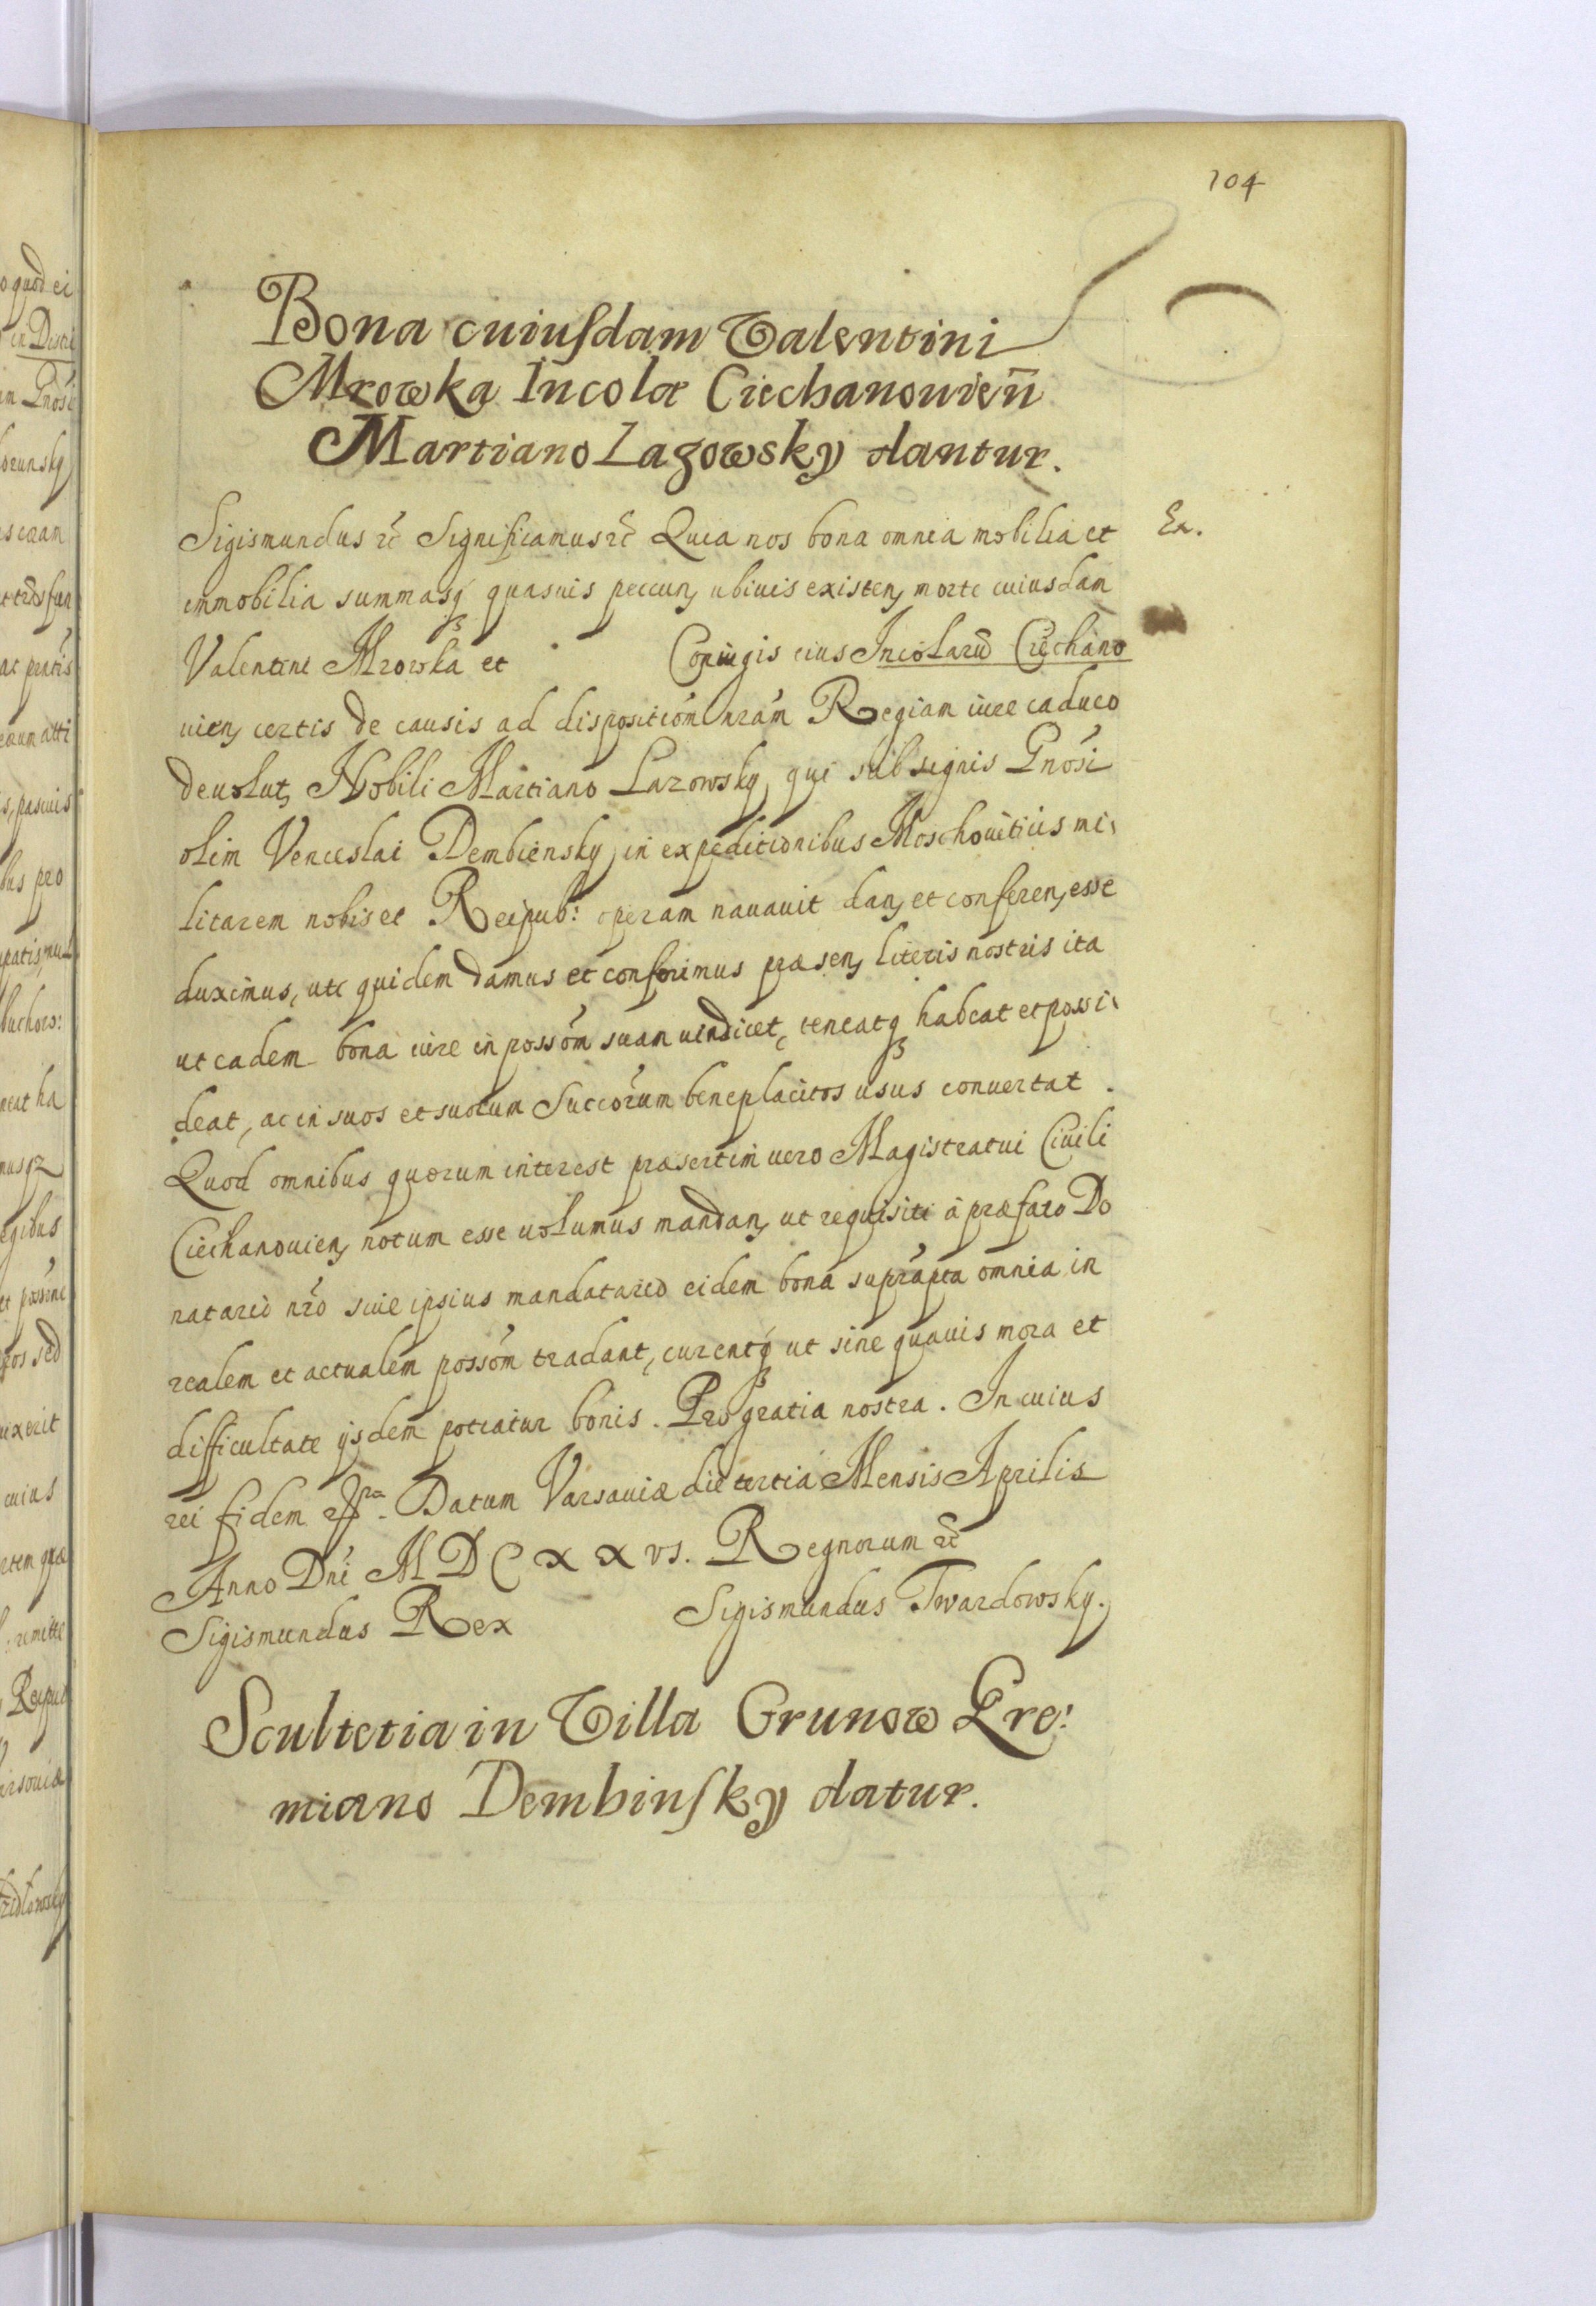 104
Bona cuiusdam Valentini
Mrowka Incolæ Ciechanouien̄
Martiano Lazowsky dantur.
Sigismundus &c̃ Significamus &c̃ Quia nos bona omnia mobilia et
Ex.
immobilia summasq̨ quasuis peccun, ubiuis existen, morte cuiusdam
Valentini Mrowka et Coniugis eius Incolarū Ciechano
uien, certis de causis ad dispositióm nrám Regiam iure caduco
deuolut, Nobili Martiano Lazowsky, qui sub signis Gnósi
olim Venceslai Dembiensky in expeditionibus Moschouiticis mi
litarem nobis et Reipub: operam nauauit dan, et conferen, esse
duximus, uti quidem damus et conferimus præsen, literis nostris ita
ut eadem bona iure in possóm suam uendicet, teneatq̨ habeat et possi
deat, ac in suos et suorum Succórum beneplacitos usus conuertat.
Quod omnibus quorum interest præsertim uero Magistratui Ciuili
Ciechanouien, notum esse uolumus mandan, ut requisiti à præfato Do
natario nró siue ipsius mandatario eidem bona suprápta omnia in
realem et actualem possóm tradant, curentq̨ ut sine quauis mora et
difficultate ijsdem potiatur bonis. Pro gratia nostra. In cuius
rei fidem &c. Datum Varsauiæ die tertia Mensis Aprilis
Anno Dni M D C X X VI. Regnorum &c̃
Sigismundus Rex Sigismundus Twardowsky.
Scultetia in Villa Grunow Ere:
miano Dembinsky datur.